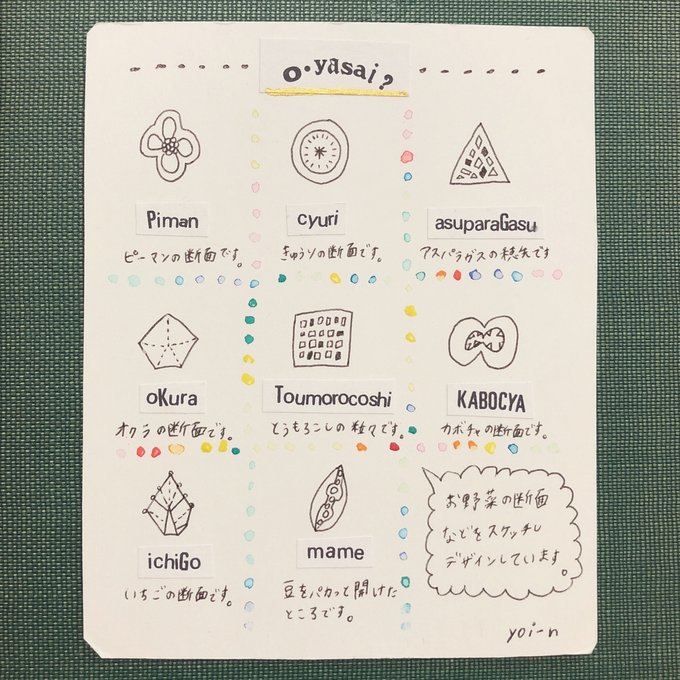 o.yasai?
Piman
ピーマンの断面です。
cyuri
きゅうりの断面です。
asuparaGasu
アスパラガスの穂先です
oKura
オクラの断面です。
Toumorocoshi
とうもろこしの粒々です。
KABOCYA
カボチャの断面です。
ichiGo
いちごの断面です。
mame
豆をパカっと開けた
ところです。
お野菜の断面
などをスケッチし
デザインしています。
yoi-n